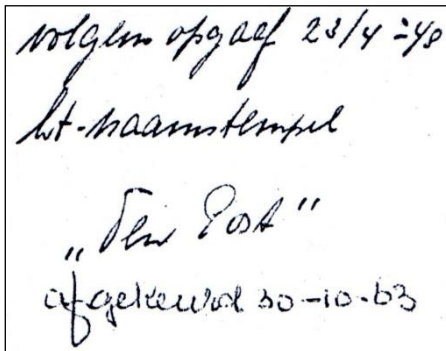 volgens opgaaf 23/4 - 48
lt-naamstempel
„Den Post"
afgekeurd 30-10-63